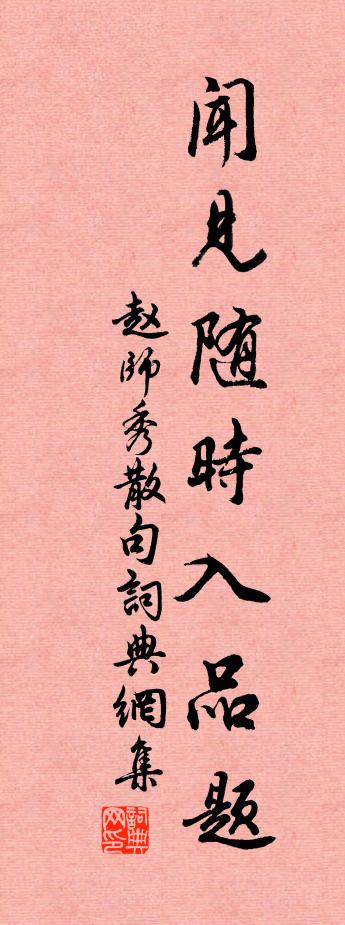 闻見随時入品题
赵師秀散句詞典網集
詞典网印